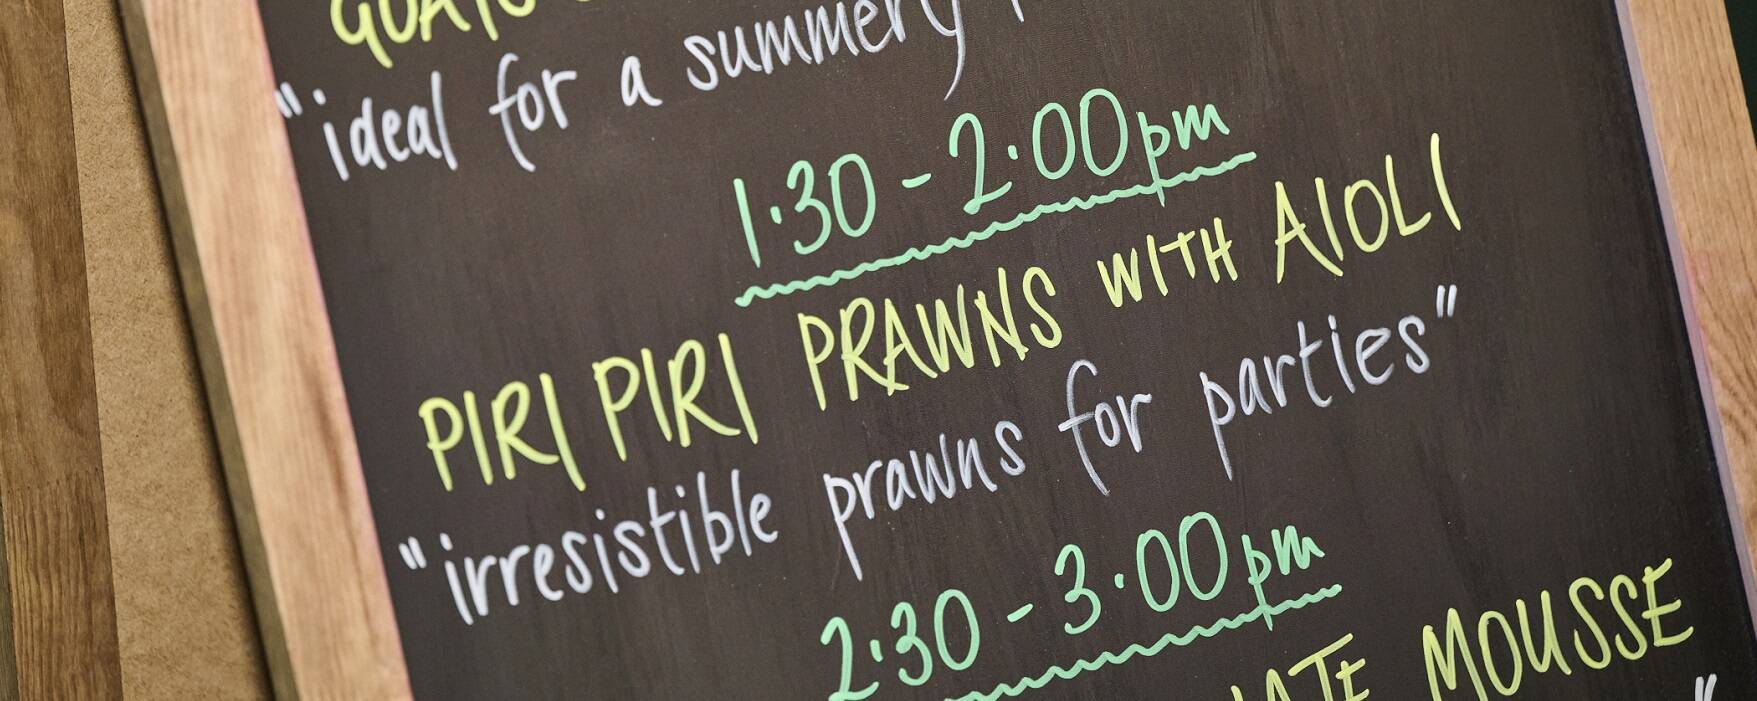 "ideal for a summery
1.30 - 2.00pm
PIRI PIRI PRAWNS WITH AIOLI
"irresistible prawns for parties"
2.30 - 3.00pm
MOUSSE